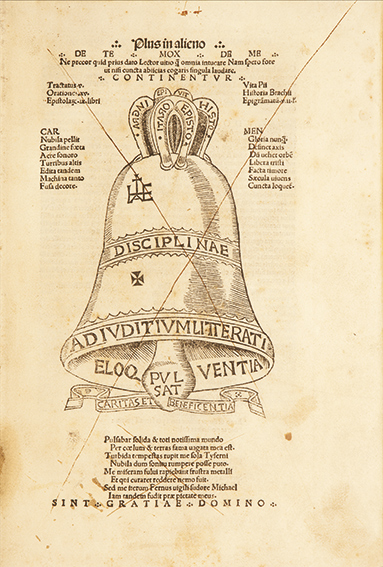 Plus in alieno
DE TE MOX DE ME
Ne precor quid prius dato Lector uitio q̃ omnia intueare Nam spero fore
ut nisi cuncta abiicias cogaris singula laudare.
CONTINENTVR
Tractatus
Orationes
Epistolaȝ libri
Vita Pii
Historia Brachii
Epigrãmata
VITE
HISTO
EPISTO
CAR
Nubila pellit
Grandine fœta
Aere sonoro
Turribus altis
Edita tandem
Machina tanto
Fusa decore.
MEN
Gloria nunq̃
Definet axis
Dũ uehet orbẽ
Libera tristi
Facta timore
Sæcula uiuens
Cuncta loquet
DISCIPLINAE
AD IVDITIVM LITTERATI
ELOQ VENTIA
PVL
SAT
CARITAS ET BENEFICENTIA
Pulsabar solida & toti notissima mundo
Per cœlum & terras fama uagata mea est.
Turbida tempestas rupit me sola Tyferni
Nubila dum sonitu rumpere posse puto.
Me miseram fului rapiebant frustra metalli
Et qui curaret reddere nemo fuit.
Sed me iterum Fernus uigili sudore Michael
Iam tandem fudit præ pietate meus.
SINT GRATIAE DOMINO